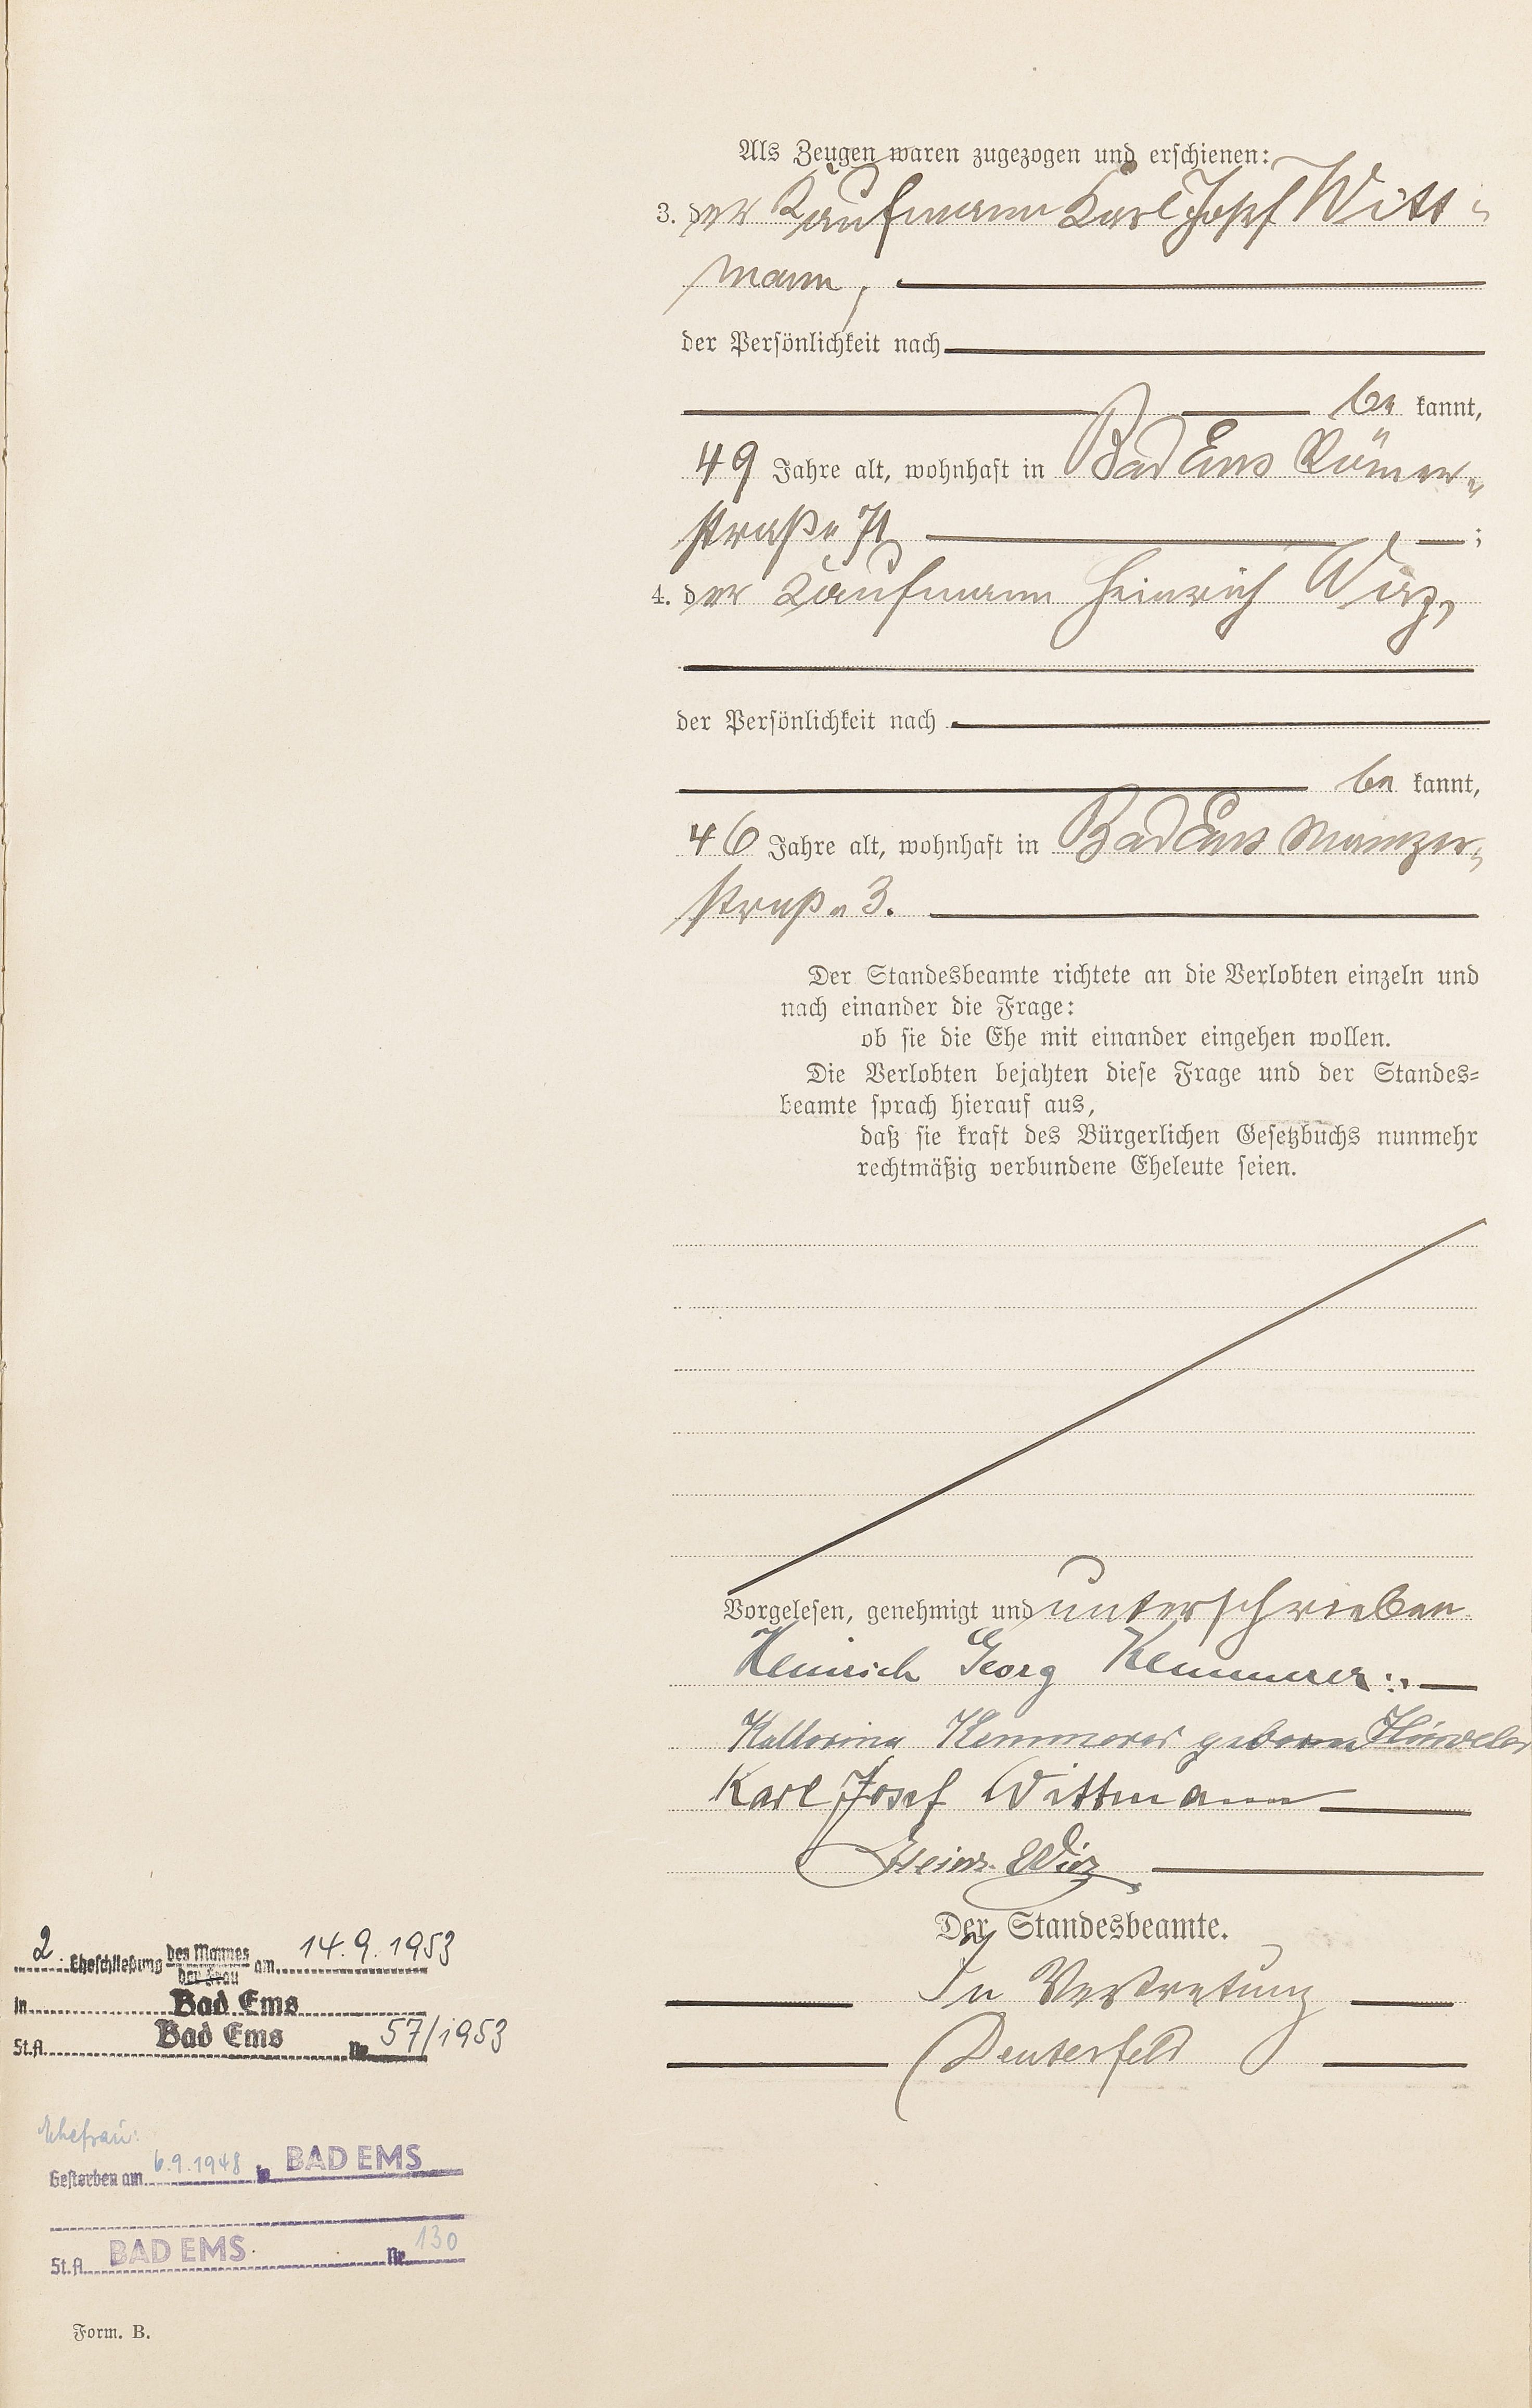 Als Zeugen waren zugezogen und erschienen:
3. der Kaufmann Karl Josef Witt-
mann,
der Persönlichkeit nach
be kannt,
49 Jahre alt, wohnhaft in Bad Ems Römer-
straße 71 ;
4. der Kaufmann Heinrich Wirz,
der Persönlichkeit nach
be kannt,
46 Jahre alt, wohnhaft in Bad Ems Mainzer-
straße 3.
Der Standesbeamte richtete an die Verlobten einzeln und
nach einander die Frage:
ob sie die Ehe mit einander eingehen wollen.
Die Verlobten bejahten diese Frage und der Standes=
beamte sprach hierauf aus,
daß sie kraft des Bürgerlichen Gesetzbuchs nunmehr
rechtmäßig verbundene Eheleute seien.
Vorgelesen, genehmigt und unterschrieben
Heinrich Georg Kemmerer
Katharina Kemmerer geborene
Karl Josef Wittmann
Heinr. Wirz
Der Standesbeamte.
In Vertretung
Deuserfeld
2. Eheschließung des Mannes der Frau am 14.9.1953
in Bad Ems
St.A. Bad Ems Nr. 57/1953
Ehefrau:
Gestorben am 6.9.1948 in BAD EMS
St.A. BAD EMS Nr. 130
Form. B.